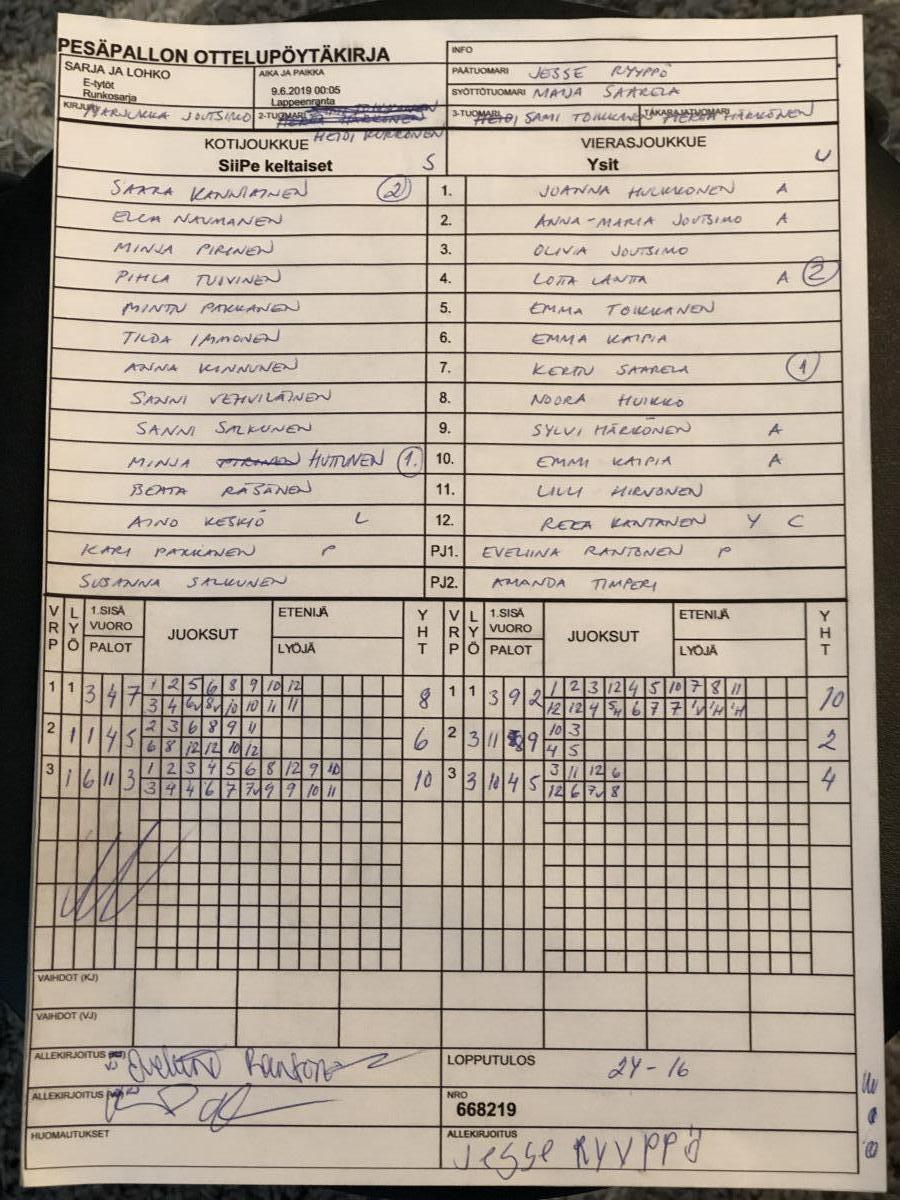 PESÄPALLON OTTELUPÖYTÄKIRJA
INFO
SARJA JA LOHKO
E-tytöt
Runkosarja
AIKA JA PAIKKA
9.6.2019 00:05
Lappeenranta
PÄÄTUOMARI JESSE RYYPPÖ
SYÖTTÖTUOMARI MAIJA SAARELA
KIRJURI MARJUKKA JOUTSIMO
2-TUOMARI HEIDI KURRONEN
3-TUOMARI SAMI TOIKKANEN
TAKARAJATUOMARI HÄRKÖNEN
KOTIJOUKKUE
SiiPe keltaiset S
VIERASJOUKKUE
Ysit U
SAARA KANNIAINEN 2 1. JOANNA HULKKONEN A
ELLA NAUMANEN 2. ANNA-MARIA JOUTSIMO A
MINJA PIRINEN 3. OLIVIA JOUTSIMO
PIHLA TUIVINEN 4. LOTTA LANTTA A 2
MINTU PAKKANEN 5. EMMA TOIKKANEN
TILDA IMMONEN 6. EMMA KAIPIA
ANNA KINNUNEN 7. KERTTU SAARELA 1
SANNI VEHVILÄINEN 8. NOORA HUIKKO
SANNI SALKUNEN 9. SYLVI HÄRKÖNEN A
MINJA PIRINEN HUTTUNEN 1. 10. EMMI KAIPIA A
BEATA RÄSÄNEN 11. LILLI HIRVONEN
AINO KESKIÖ L 12. REEA KANTANEN Y C
KARI PAKKANEN P PJ1. EVELIINA RANTONEN P
SUSANNA SALKUNEN PJ2. AMANDA TIMPERI
VRP LYÖ 1.SISÄ VUORO PALOT JUOKSUT ETENIJÄ LYÖJÄ YHT VRP LYÖ 1.SISÄ VUORO PALOT JUOKSUT ETENIJÄ LYÖJÄ YHT
1 2 5 6 8 9 10 12 1 2 3 12 4 5 10 7 8 11
1 1 3 4 7 8 1 1 3 9 2 10
3 4 6v 8v 10 10 11 11 12 12 4 5H 6 7 7
2 3 6 8 9 11 10 3
2 1 1 4 5 6 2 3 11 9 2
6 8 12 12 10 12 4 5
1 2 3 4 5 6 8 12 9 10 3 11 12 6
3 1 6 11 3 10 3 3 10 4 5 4
3 4 4 6 7 7v 9 9 10 11 12 6 7v 8
VAIHDOT (KJ)
VAIHDOT (VJ)
ALLEKIRJOITUS Eveliina Rantonen
LOPPUTULOS 24-16
ALLEKIRJOITUS
NRO
668219
HUOMAUTUKSET
ALLEKIRJOITUS Jesse RYYPPÖ